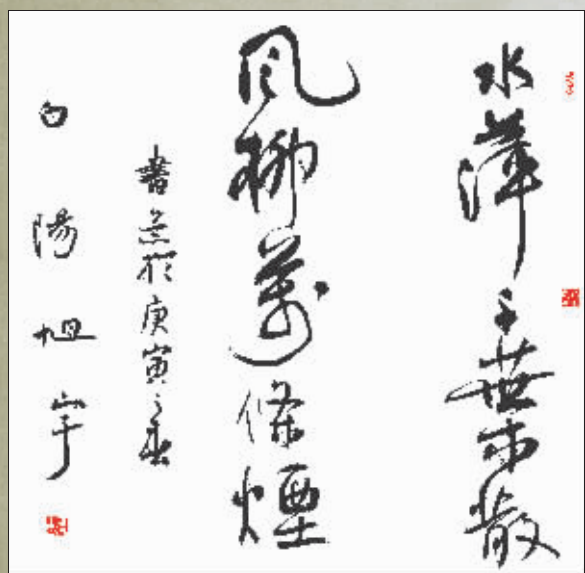 水萍千葉散
風柳萬條煙
書於庚寅之春
白陽旭宇